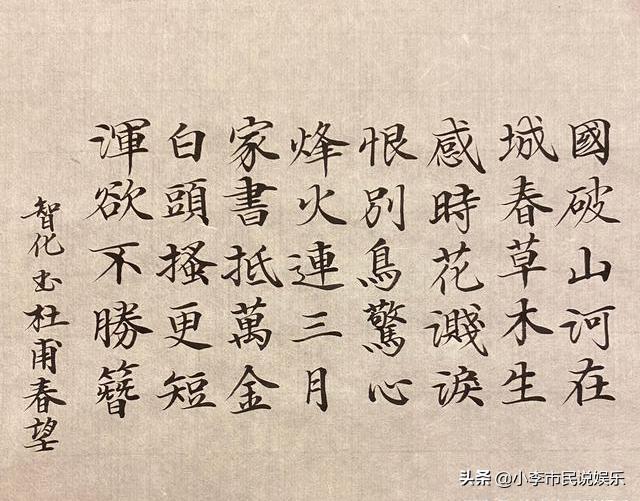 國破山河在
城春草木生
感時花濺淚
恨別鳥驚心
烽火連三月
家書抵萬金
白頭搔更短
渾欲不勝簪
智化书杜甫春望
头条 @小李市民说娱乐